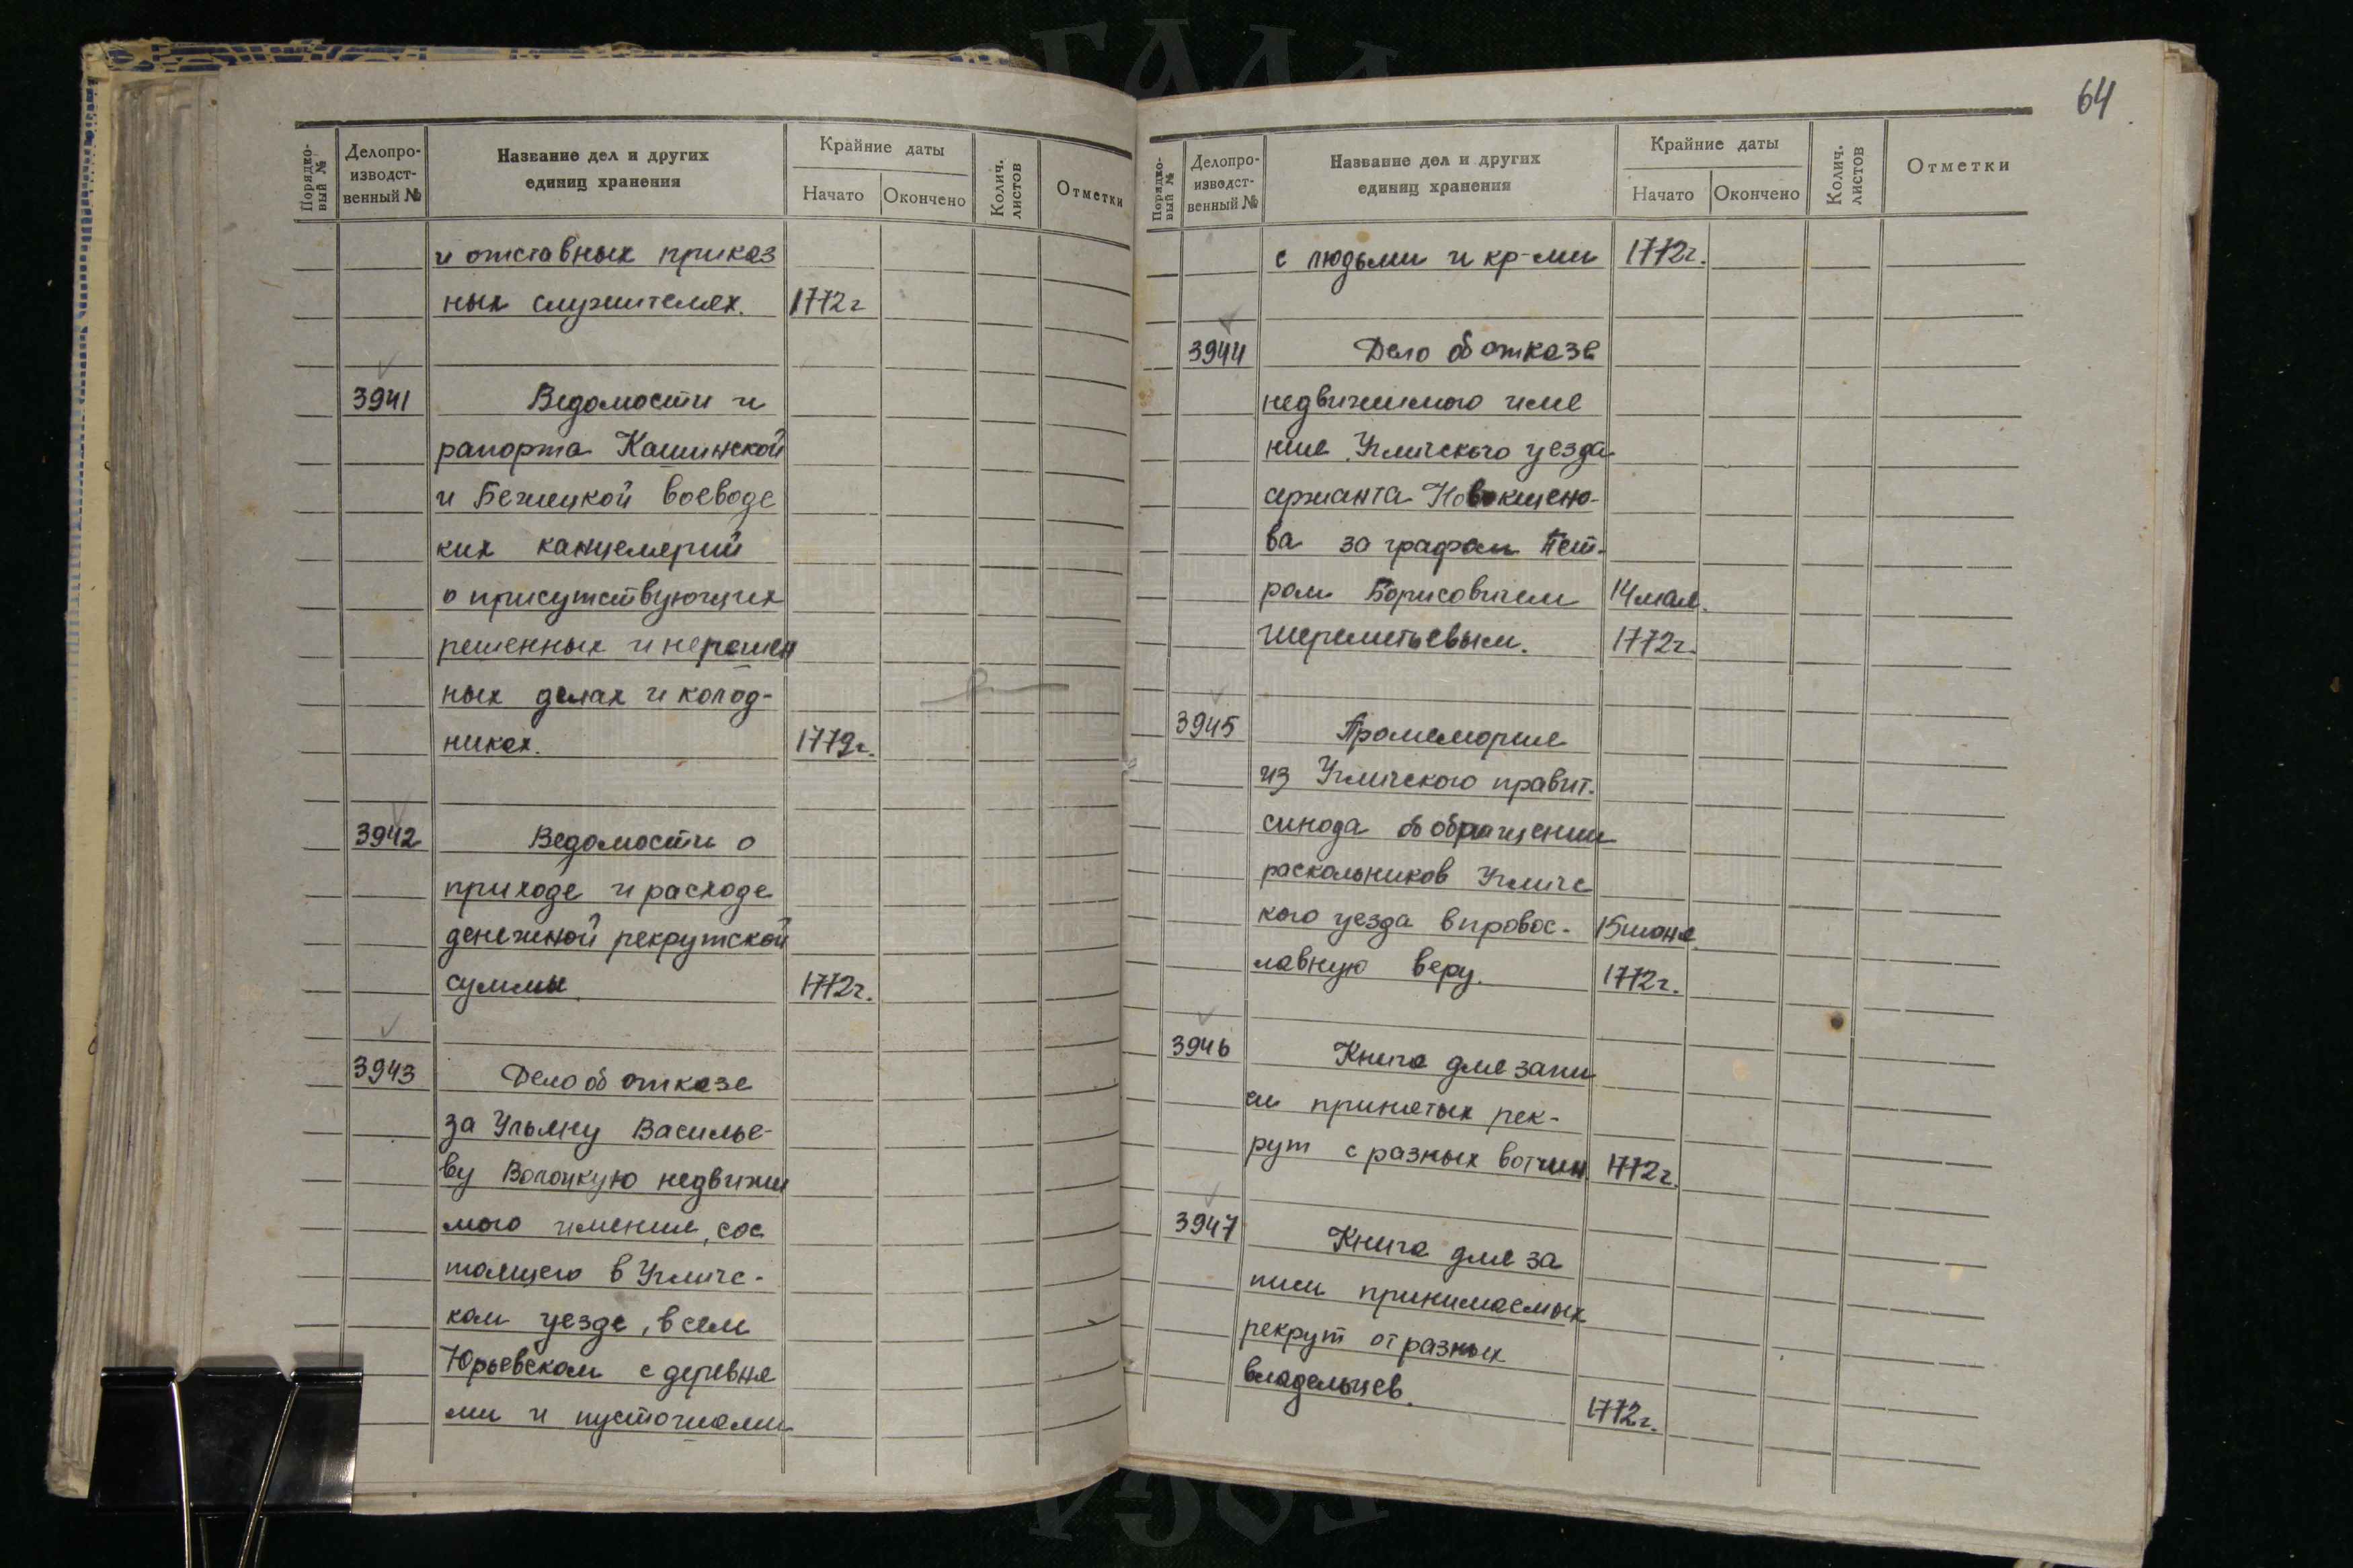 64
Порядко-
вый №
Делопро-
изводст-
венный №
Название дел и других
единиц хранения
Крайние даты
Начато
Окончено
Колич.
листов
Отметки
и отставных приказ
ных служителях. 1772 г
3941 Ведомости и
рапорта Кашинской
и Бежецкой воеводс
ких канцелярий
о присутствующих
решенных и нерешен
ных делах и колод-
никах. 1772г.
3942 Ведомости о
приходе и расходе
денежной рекрутской
суммы. 1772г.
3943 Дело об отказе
за Ульяну Василье-
ву Волоцкую недвижи
мого имения, сос
тоящего в Угличс-
ком уезде, в селе
Юрьевском с деревня
ми и пустошами
Порядко-
вый №
Делопро-
изводст-
венный №
Название дел и других
единиц хранения
Крайние даты
Начато
Окончено
Колич.
листов
Отметки
с людьми и кр-ми 1772г.
3944 Дело об отказе
недвижимого име
ния Угличского уезда
сержанта Новокщено-
ва за графом Пет-
ром Борисовичем 14 мая
Шереметьевым. 1772г.
3945 Промемория
из Угличского правит.
синода об обращении
раскольников Угличс
кого уезда в провос- 15 июня
лавную веру. 1772г.
3946 Книга для запи
си принятых рек-
рут с разных вотчин. 1772г.
3947 Книга для за
писи принимаемых
рекрут от разных
владельцев. 1772г.